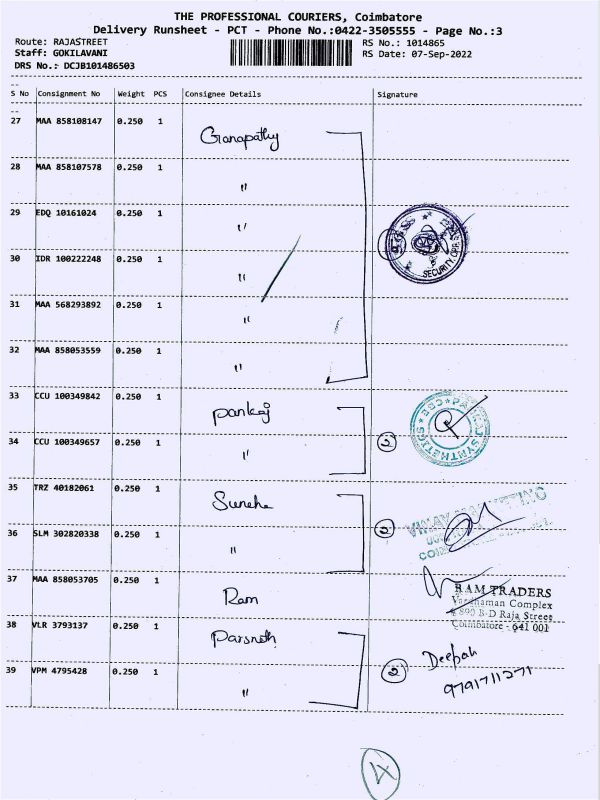 THE PROFESSIONAL COURIERS, Coimbatore
Delivery Runsheet - PCT - Phone No.:0422-3505555 - Page No.:3
Route: RAJASTREET
RS No.: 1014865
Staff: GOKILAVANI
RS Date: 07-Sep-2022
DRS No.: DCJB101486503
S No Consignment No Weight PCS Consignee Details Signature
27 MAA 858108147 0.250 1 Ganapathy
28 MAA 858107578 0.250 1 "
29 EDQ 10161024 0.250 1 "
30 IDR 100222248 0.250 1 "
31 MAA 568293892 0.250 1 "
32 MAA 858053559 0.250 1 "
SECURITY
33 CCU 100349842 0.250 1 Pankaj
34 CCU 100349657 0.250 1 " 2
PANKAJ SYNTHETICS CBE
35 TRZ 40182061 0.250 1 Suneha
36 SLM 302820338 0.250 1 " 2
VINAY MARKETING
37 MAA 858053705 0.250 1 Ram
RAM TRADERS
Vardhaman Complex
890 B-D Raja Street
Coimbatore - 641 001
38 VLR 3793137 0.250 1 Parsnath
39 VPM 4795428 0.250 1 " 2
Deepak
9791711271
4